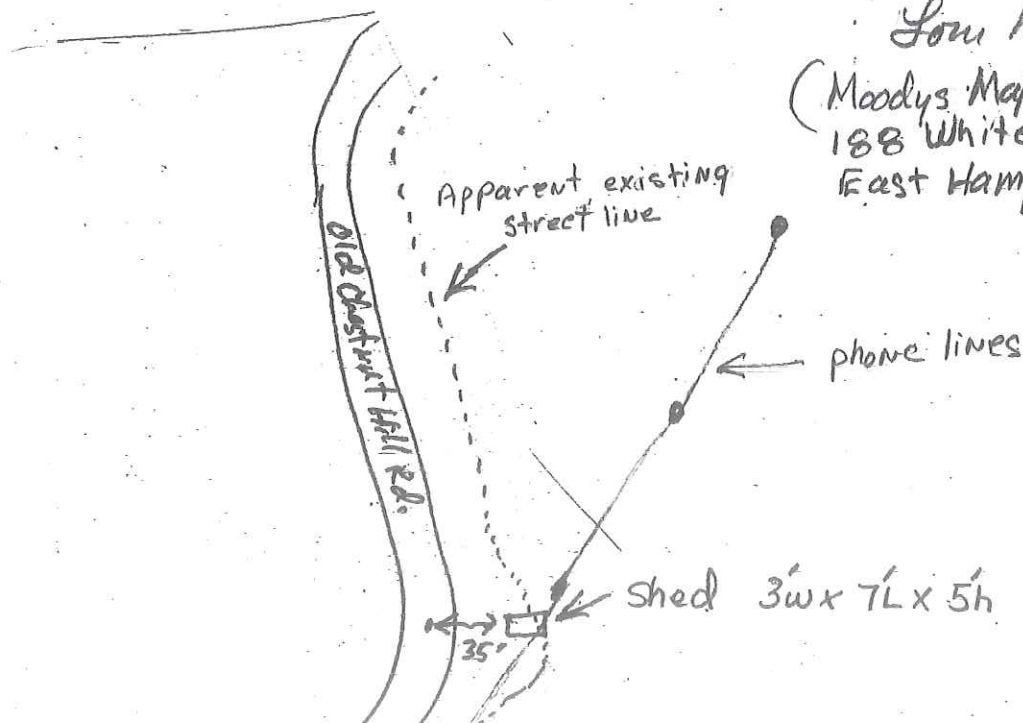 Moodys
188 White
East Ham
Apparent existing
street line
Old Chestnut Hill Rd.
phone lines
Shed 3'w x 7'L x 5'h
35'